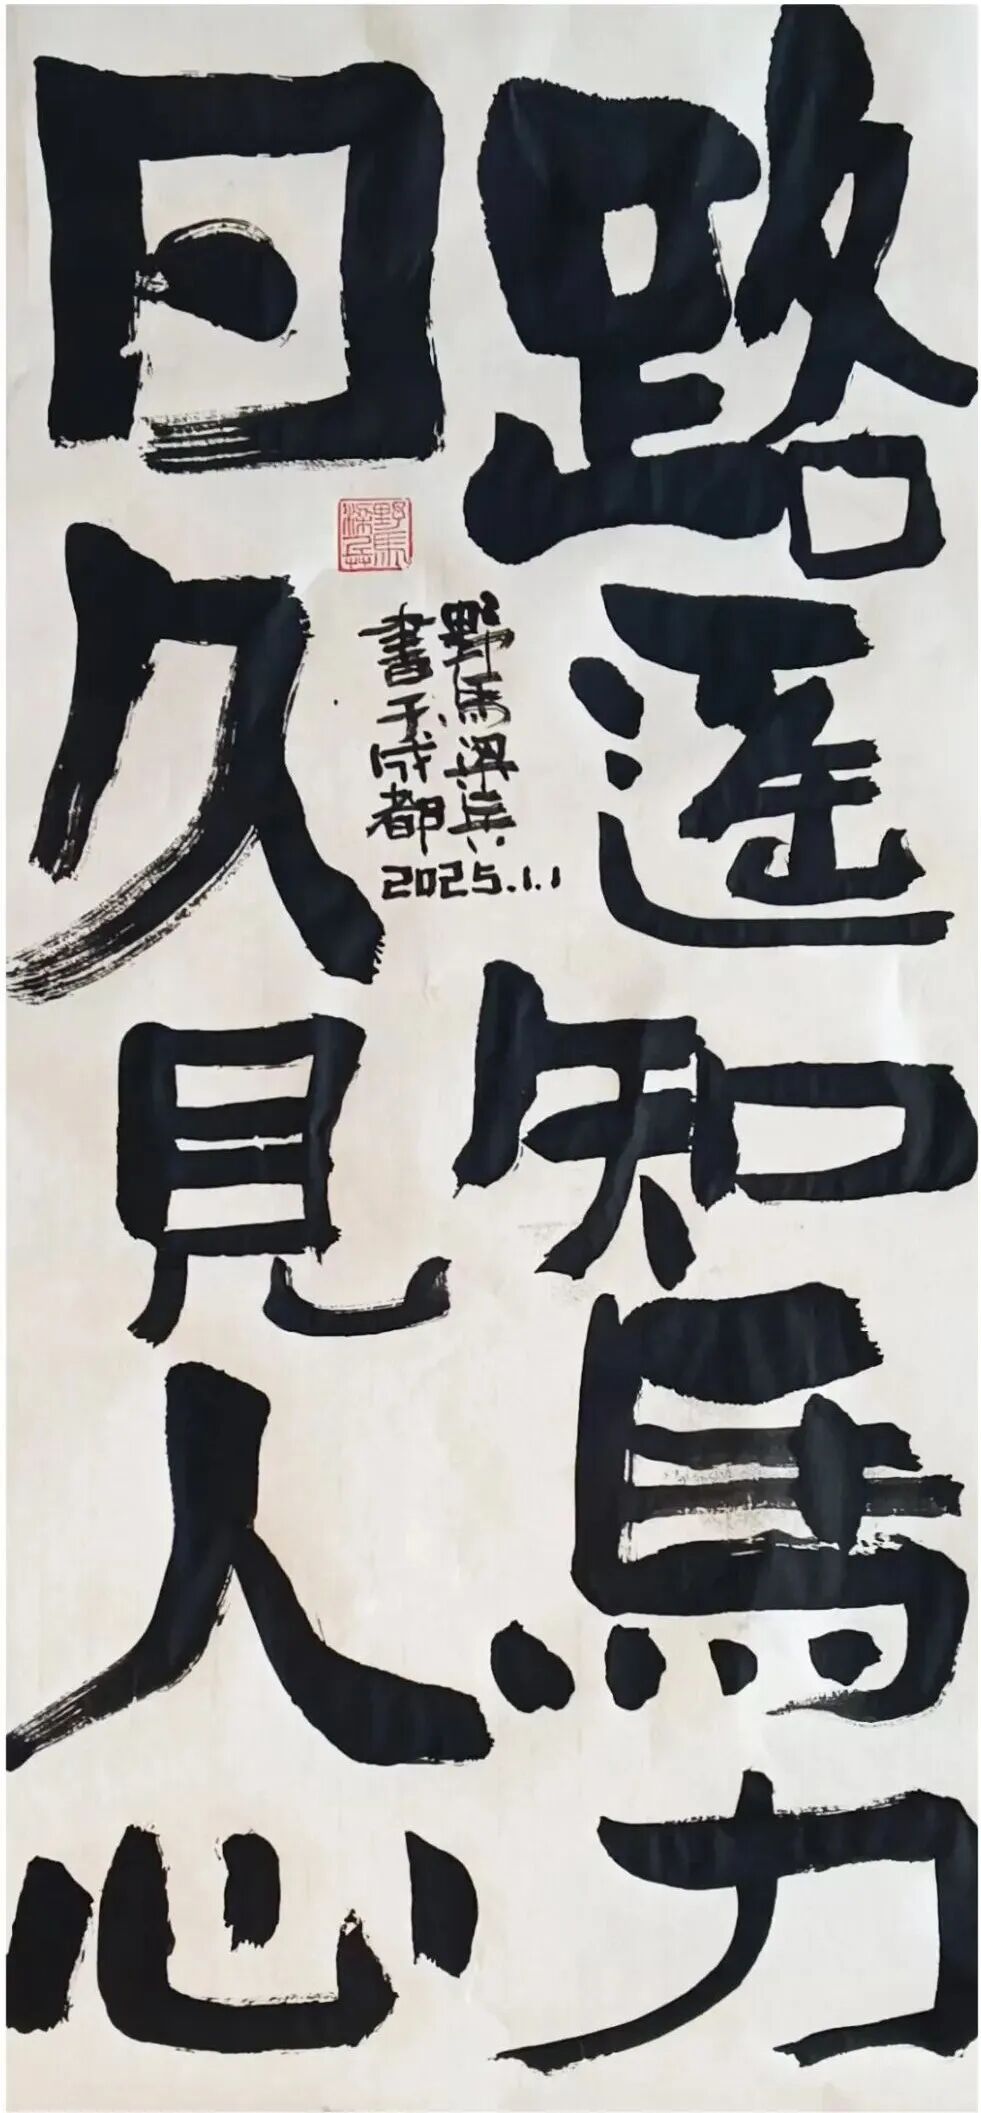 路遥知馬力
日久見人心
野馬梁兵
書于成都
2025.1.1
野馬
梁兵